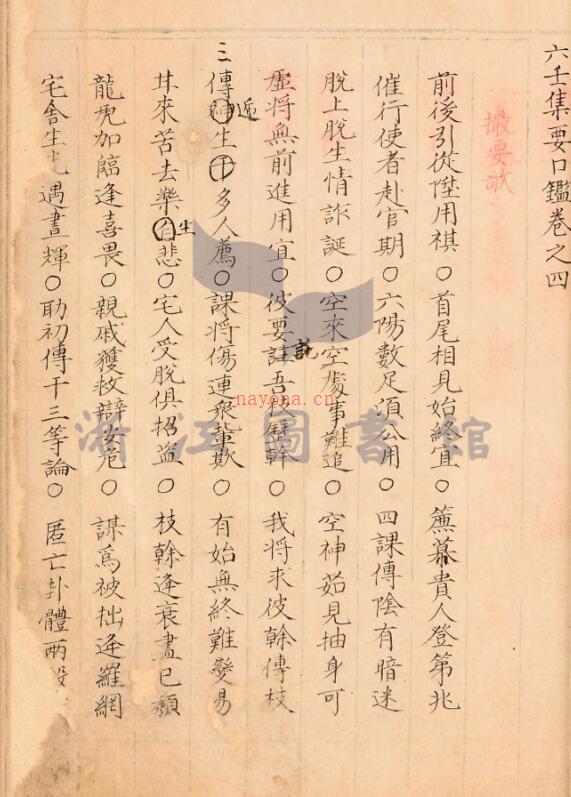 六壬集要口鑑卷之四
撮要歌
前後引從陞用祺○首尾相見始終宜○簾幕貴人登第兆
催行使者赴官期○六陽數足須公用○四課傳陰有暗迷
脫上脫生情詐誕○空來空處事難追○空神茹見抽身可
虛將無前進用宜○彼要託吾枝屬幹○我將求彼幹傳枝
三傳遞生干多人薦○課將傷連衆輩欺○有始無終難變易
廿來苦去樂生悲○宅人受脫俱招盜○枝幹逢衰盡已頹
龍虎加臨逢喜畏○親戚獲救辯安危○謀爲被拙逢羅網
宅舍生 遇晝輝○助初傳干三等論○匿亡卦體兩
浙江圖書館
nayona.cn